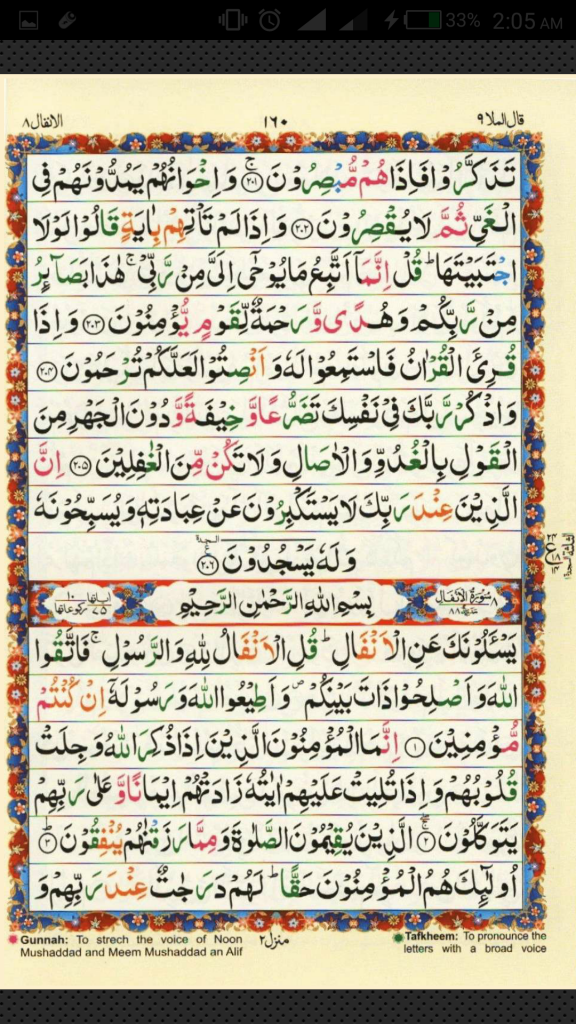 33% 2:05 AM
قال الملا ٩
١٦٠
الانفال ٨
تَذَكَّرُوْا فَاِذَا هُمْ مُّبْصِرُوْنَ ۚ‏﴿۲۰۱﴾ وَ اِخْوَانُهُمْ يَمُدُّوْنَهُمْ فِى
الْغَىِّ ثُمَّ لَا يُقْصِرُوْنَ ﴿۲۰۲﴾ وَ اِذَا لَمْ تَاْتِهِمْ بِاٰيَةٍ قَالُوْا لَوْلَا
اجْتَبَيْتَهَا ؕ قُلْ اِنَّمَاۤ اَتَّبِعُ مَا يُوْحٰۤى اِلَىَّ مِنْ رَّبِّىْ ۚ هٰذَا بَصَآئِرُ
مِنْ رَّبِّكُمْ وَ هُدًى وَّ رَحْمَةٌ لِّقَوْمٍ يُّؤْمِنُوْنَ ﴿۲۰۳﴾ وَ اِذَا
قُرِئَ الْقُرْاٰنُ فَاسْتَمِعُوْا لَهٗ وَ اَنْصِتُوْا لَعَلَّكُمْ تُرْحَمُوْنَ ﴿۲۰۴﴾
وَ اذْكُرْ رَّبَّكَ فِىْ نَفْسِكَ تَضَرُّعًا وَّ خِيْفَةً وَّ دُوْنَ الْجَهْرِ مِنَ
الْقَوْلِ بِالْغُدُوِّ وَ الْاٰصَالِ وَ لَا تَكُنْ مِّنَ الْغٰفِلِيْنَ ﴿۲۰۵﴾ اِنَّ
الَّذِيْنَ عِنْدَ رَبِّكَ لَا يَسْتَكْبِرُوْنَ عَنْ عِبَادَتِهٖ وَ يُسَبِّحُوْنَهٗ
وَ لَهٗ يَسْجُدُوْنَ ﴿۲۰۶﴾
٨ سُوْرَةُ الْاَنْفَالِ مدنية ٨٨
بِسْمِ اللّٰهِ الرَّحْمٰنِ الرَّحِيْمِ
اٰياتها ٧٥ ركوعاتها ١٠
يَسْـَٔلُوْنَكَ عَنِ الْاَنْفَالِ ؕ قُلِ الْاَنْفَالُ لِلّٰهِ وَ الرَّسُوْلِ ۚ فَاتَّقُوا
اللّٰهَ وَ اَصْلِحُوْا ذَاتَ بَيْنِكُمْ ۪ وَ اَطِيْعُوا اللّٰهَ وَ رَسُوْلَهٗۤ اِنْ كُنْتُمْ
مُّؤْمِنِيْنَ ﴿۱﴾ اِنَّمَا الْمُؤْمِنُوْنَ الَّذِيْنَ اِذَا ذُكِرَ اللّٰهُ وَجِلَتْ
قُلُوْبُهُمْ وَ اِذَا تُلِيَتْ عَلَيْهِمْ اٰيٰتُهٗ زَادَتْهُمْ اِيْمَانًا وَّ عَلٰى رَبِّهِمْ
يَتَوَكَّلُوْنَ ﴿۲﴾ الَّذِيْنَ يُقِيْمُوْنَ الصَّلٰوةَ وَ مِمَّا رَزَقْنٰهُمْ يُنْفِقُوْنَ ﴿۳﴾
اُولٰٓئِكَ هُمُ الْمُؤْمِنُوْنَ حَقًّا ؕ لَهُمْ دَرَجٰتٌ عِنْدَ رَبِّهِمْ وَ
Gunnah: To strech the voice of Noon
Mushaddad and Meem Mushaddad an Alif
منزل ٢
Tafkheem: To pronounce the
letters with a broad voice